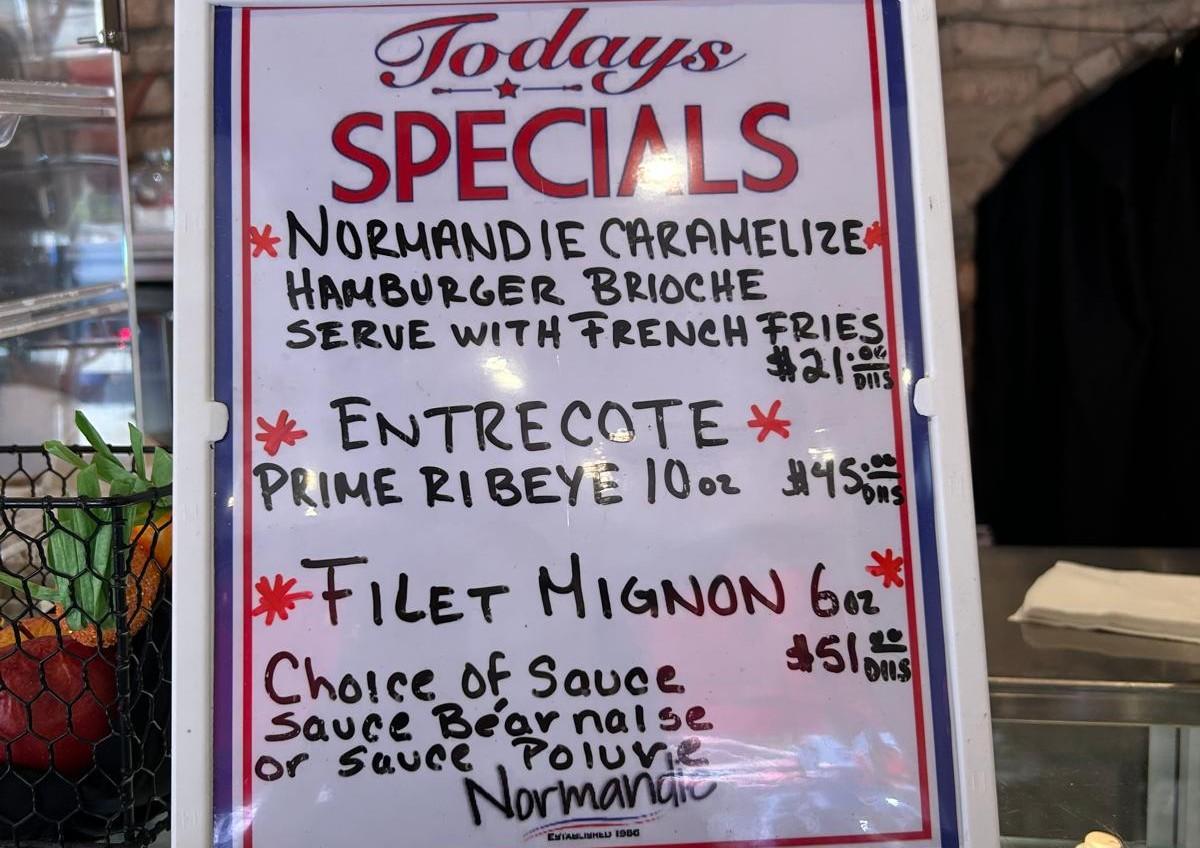 Todays
SPECIALS
* NORMANDIE CARAMELIZE *
HAMBURGER BRIOCHE
SERVE WITH FRENCH FRIES
$21.00 Dlls
* ENTRECOTE *
PRIME RIBEYE 10oz $45.00 Dlls
* FILET MIGNON 6oz *
$51.00 Dlls
Choice of Sauce
Sauce Béarnaise
or sauce Poluvre
Normandie
ESTABLISHED 1986